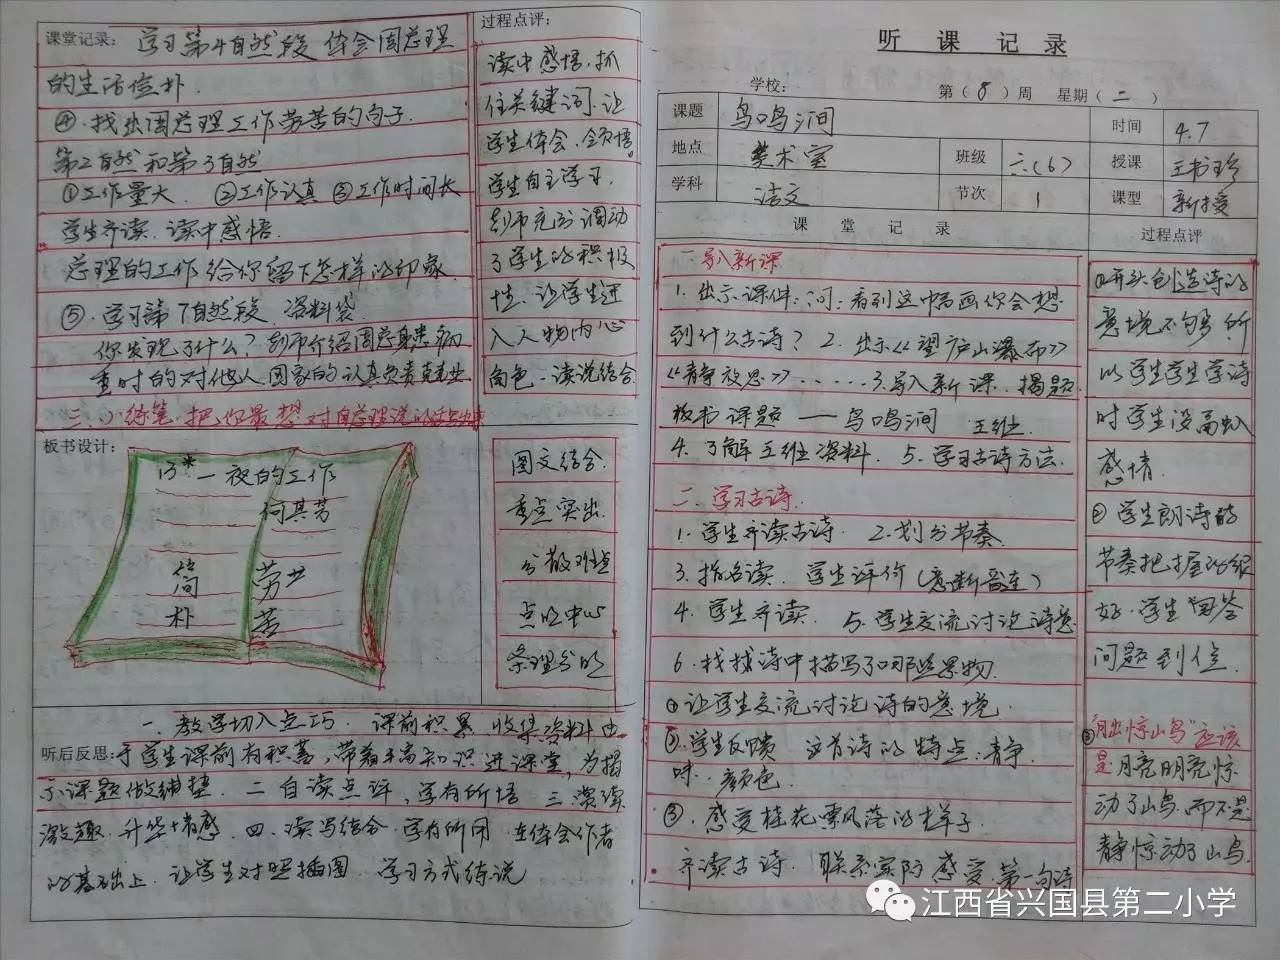 课堂记录：学习第4自然段 体会周总理
的生活俭朴.
④.找出周总理工作劳苦的句子.
第2自然和第3自然
①工作量大. ②工作认真 ③工作时间长
学生齐读.读中感悟.
总理的工作给你留下怎样的印象.
⑤.学习第7自然段.资料袋
你发现了什么？老师介绍周总患病
重时的对他人国家的认真负责
三.小练笔.把你最想对周总理说的话写出来
过程点评：
读中感悟.抓
住关键词.让
学生体会.领悟
学生自主学习.
老师充分调动
了学生的积极
性.让学生进
入人物内心
角色.读说结合.
板书设计：
13*一夜的工作
何其芳
简
朴
劳
苦
图文结合.
重点突出.
分散难点
点明中心
条理分明
听后反思：
一.教学切入点巧.课前积累 收集资料由
于学生课前有积蓄，带着丰高知识进课堂，为揭
示课题做铺垫. 二 自读点评，学有所悟 三.
激趣.升华情感. 四.读写结合.学有所用.在体会作者
的基础上.让学生对照插图.学习方式练说
听 课 记 录
学校： 第（8）周 星期（二）
课题 鸟鸣涧 时间 4.7
地点 美术室 班级 六(6) 授课 王书珍
学科 语文 节次 1 课型 新授
课 堂 记 录 过程点评
一 导入新课
1.出示课件：问：看到这中画你会想
到什么古诗？ 2.出示《望庐山瀑布》
《静夜思》......3.导入新课.揭题
板书课题——鸟鸣涧 王维.
4.了解王维资料. 5.学习古诗方法.
二.学习古诗.
1.学生齐读古诗. 2.划分节奏.
3.指名读.学生评价(意断音连)
4.学生齐读. 5.学生交流讨论诗意
6.找找诗中描写了哪些景物.
①让学生交流讨论诗的意境.
②.学生反馈 这首诗的特点：静.
味.颜色.
③.感受桂花飘落的样子.
齐读古诗.联系实际感受.第一句诗
①开头创造诗的
意境不够.所
以学生学生学诗
时学生没高
感情.
②学生朗诗的
节奏把握的很
好.学生回答
问题到位.
③“月出惊山鸟”应该
是月亮明亮惊
动了山鸟.而不是
静惊动了山鸟.
江西省兴国县第二小学